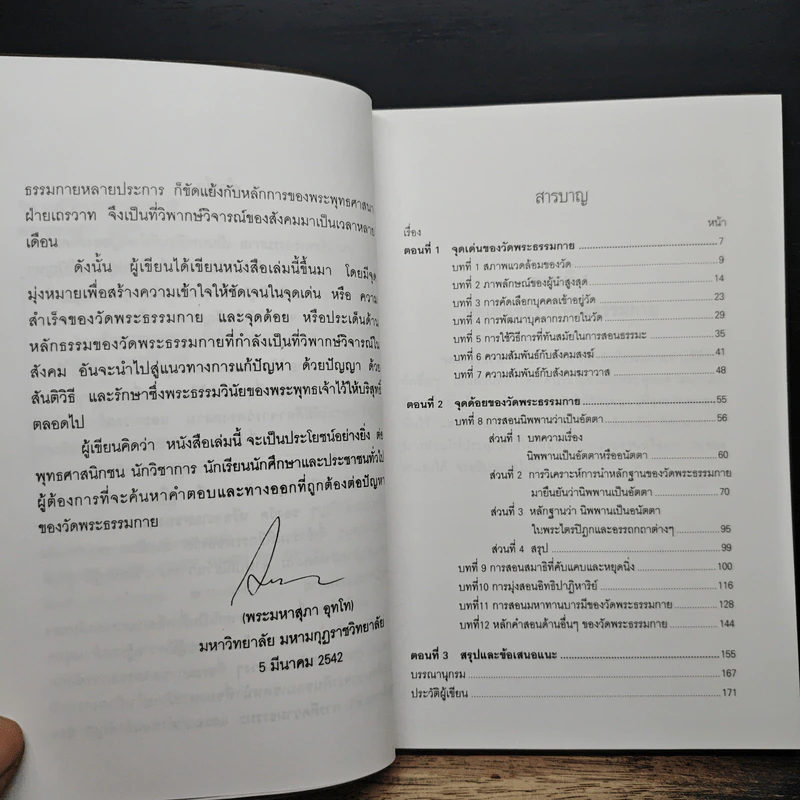 ธรรมกายหลายประการ ก็ขัดแย้งกับหลักการของพระพุทธศาสนา
ฝ่ายเถรวาท จึงเป็นที่วิพากษ์วิจารณ์ของสังคมมาเป็นเวลาหลาย
เดือน
ดังนั้น ผู้เขียนได้เขียนหนังสือเล่มนี้ขึ้นมา โดยมีจุด
มุ่งหมายเพื่อสร้างความเข้าใจให้ชัดเจนในจุดเด่น หรือ ความ
สำเร็จของวัดพระธรรมกาย และจุดด้อย หรือประเด็นด้าน
หลักธรรมของวัดพระธรรมกายที่กำลังเป็นที่วิพากษ์วิจารณ์ใน
สังคม อันจะนำไปสู่แนวทางการแก้ปัญหา ด้วยปัญญา ด้วย
สันติวิธี และรักษาซึ่งพระธรรมวินัยของพระพุทธเจ้าไว้ให้บริสุทธิ์
ตลอดไป
ผู้เขียนคิดว่า หนังสือเล่มนี้ จะเป็นประโยชน์อย่างยิ่ง ต่อ
พุทธศาสนิกชน นักวิชาการ นักเรียนนักศึกษาและประชาชนทั่วไป
ผู้ต้องการที่จะค้นหาคำตอบและทางออกที่ถูกต้องต่อปัญหา
ของวัดพระธรรมกาย
(พระมหาสุภา อุทโท)
มหาวิทยาลัย มหามกุฏราชวิทยาลัย
5 มีนาคม 2542
สารบาญ
เรื่อง หน้า
ตอนที่ 1 จุดเด่นของวัดพระธรรมกาย ........ 7
บทที่ 1 สภาพแวดล้อมของวัด ........ 9
บทที่ 2 ภาพลักษณ์ของผู้นำสูงสุด ........ 14
บทที่ 3 การคัดเลือกบุคคลเข้าอยู่วัด ........ 23
บทที่ 4 การพัฒนาบุคลากรภายในวัด ........ 29
บทที่ 5 การใช้วิธีการที่ทันสมัยในการสอนธรรมะ ........ 35
บทที่ 6 ความสัมพันธ์กับสังคมสงฆ์ ........ 41
บทที่ 7 ความสัมพันธ์กับสังคมฆราวาส ........ 48
ตอนที่ 2 จุดด้อยของวัดพระธรรมกาย ........ 55
บทที่ 8 การสอนนิพพานว่าเป็นอัตตา ........ 56
ส่วนที่ 1 บทความเรื่อง
นิพพานเป็นอัตตาหรืออนัตตา ........ 60
ส่วนที่ 2 การวิเคราะห์การนำหลักฐานของวัดพระธรรมกาย
มายืนยันว่านิพพานเป็นอัตตา ........ 70
ส่วนที่ 3 หลักฐานว่า นิพพานเป็นอนัตตา
ในพระไตรปิฎกและอรรถกถาต่างๆ ........ 95
ส่วนที่ 4 สรุป ........ 99
บทที่ 9 การสอนสมาธิที่คับแคบและหยุดนิ่ง ........ 100
บทที่10 การมุ่งสอนอิทธิปาฏิหาริย์ ........ 116
บทที่11 การสอนมหาทานบารมีของวัดพระธรรมกาย ........ 128
บทที่12 หลักคำสอนด้านอื่นๆ ของวัดพระธรรมกาย ........ 144
ตอนที่ 3 สรุปและข้อเสนอแนะ ........ 155
บรรณานุกรม ........ 167
ประวัติผู้เขียน ........ 171